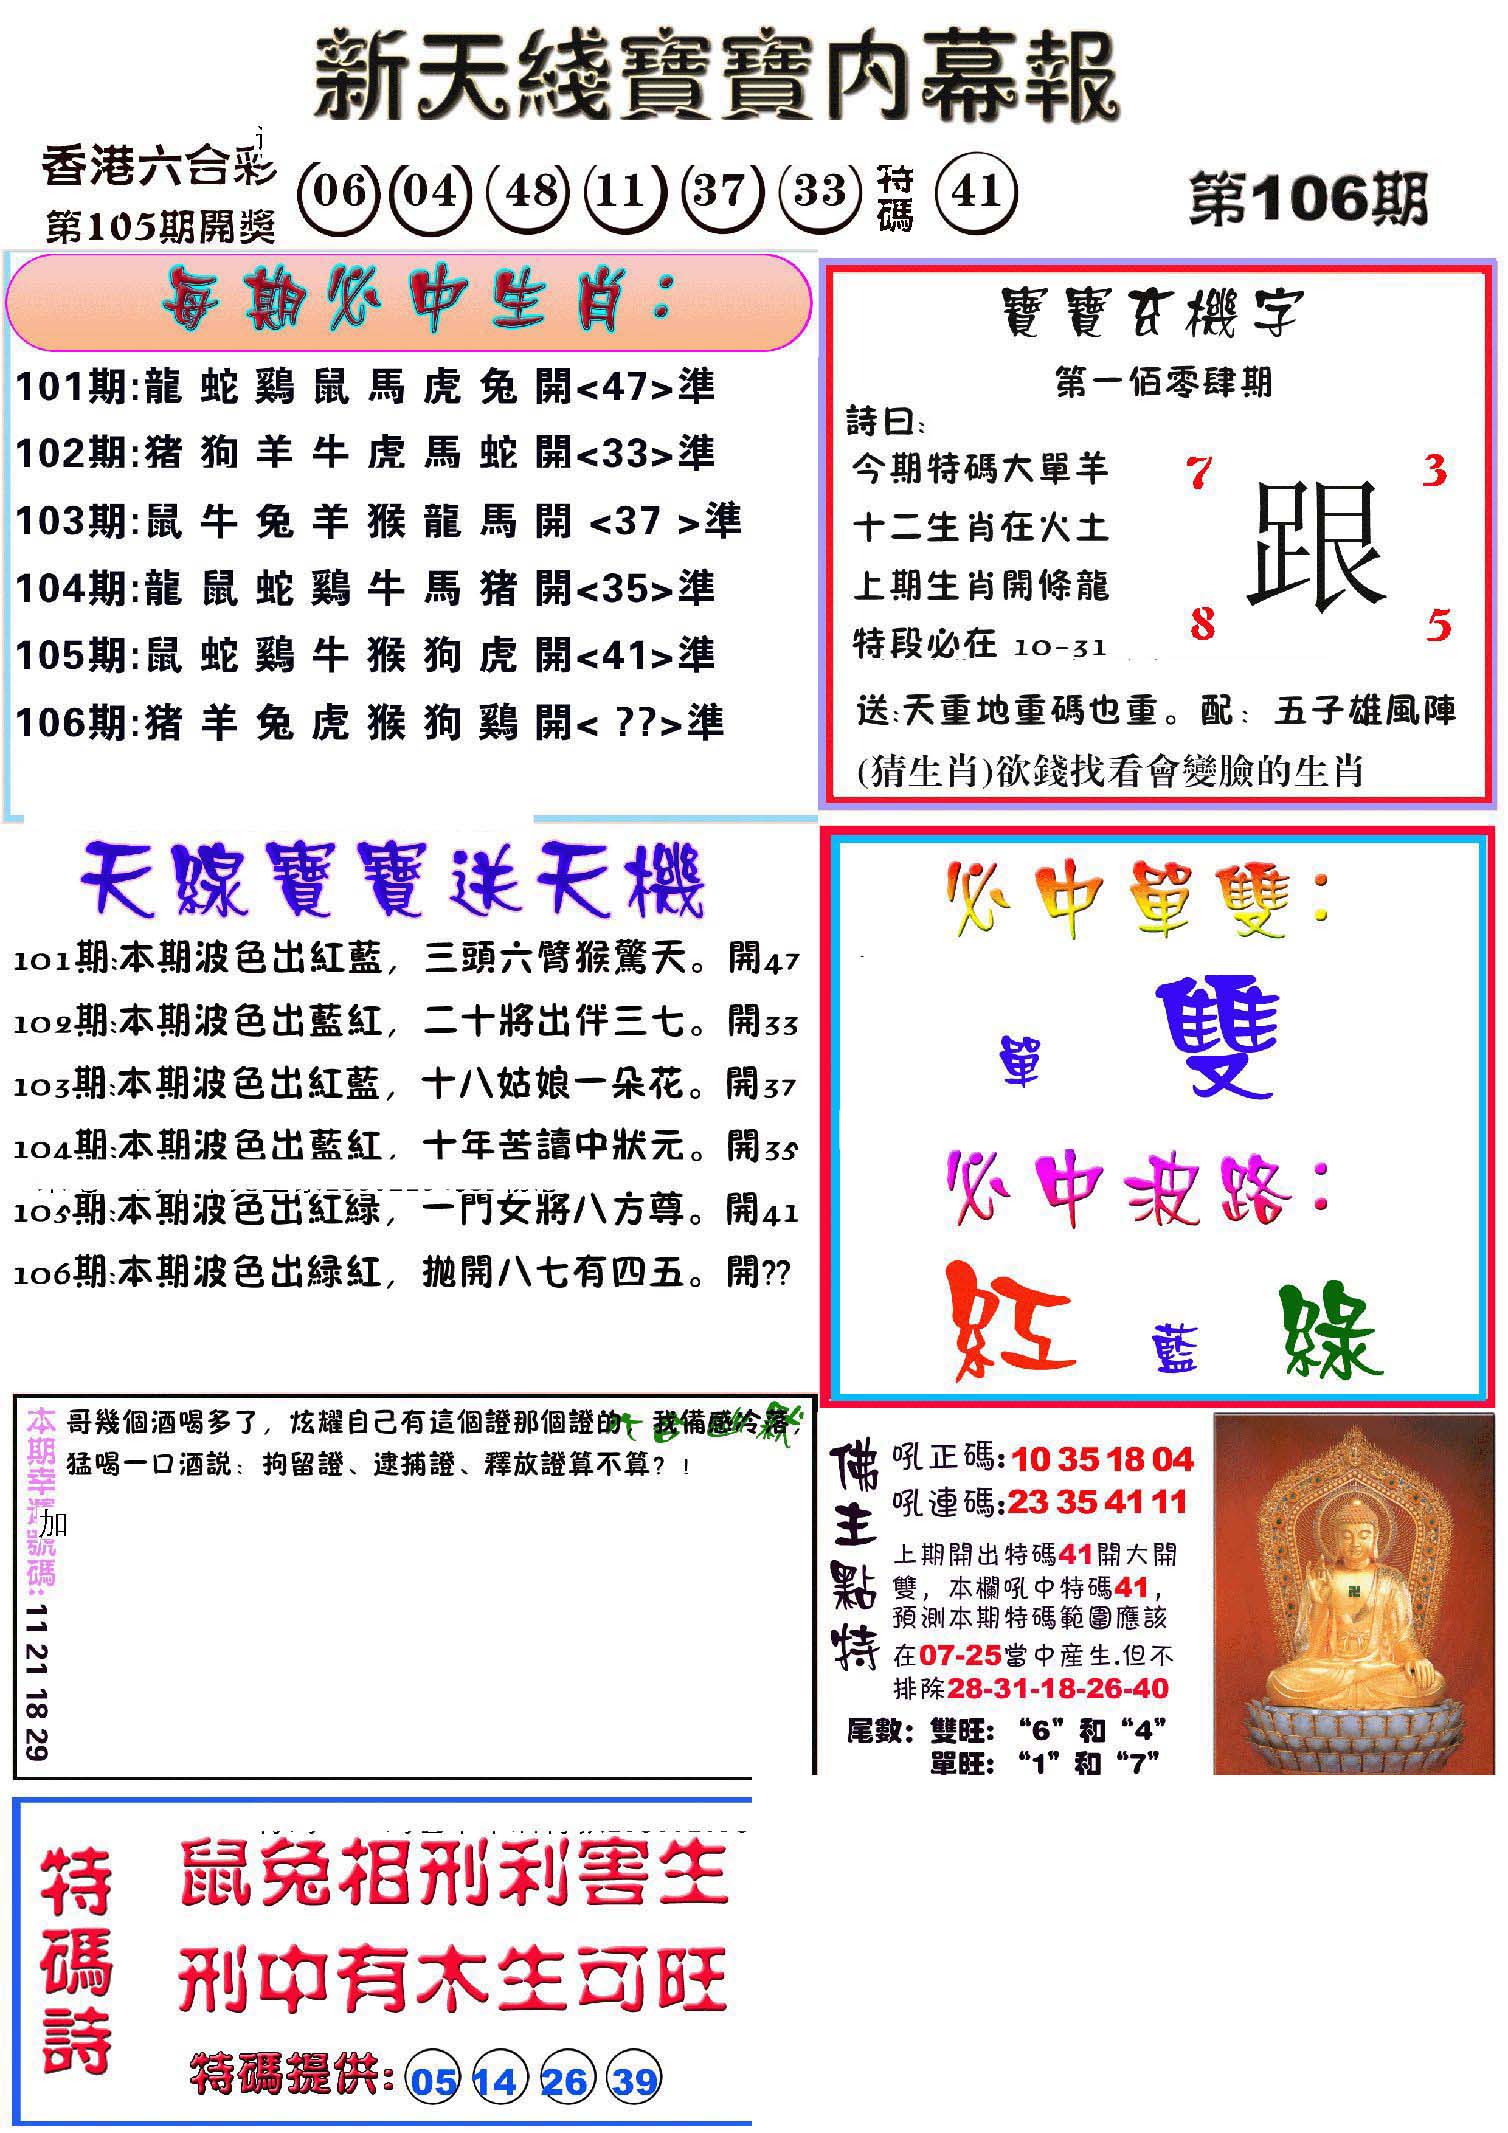 新天綫寶寶内幕報
香港六合彩
第105期開獎
06 04 48 11 37 33 特碼 41
第106期
每期必中生肖：
101期:龍 蛇 鷄 鼠 馬 虎 兔 開<47>準
102期:猪 狗 羊 牛 虎 馬 蛇 開<33>準
103期:鼠 牛 兔 羊 猴 龍 馬 開 <37 >準
104期:龍 鼠 蛇 鷄 牛 馬 猪 開<35>準
105期:鼠 蛇 鷄 牛 猴 狗 虎 開<41>準
106期:猪 羊 兔 虎 猴 狗 鷄 開< ??>準
寶寶玄機字
第一佰零肆期
詩曰:
今期特碼大單羊
十二生肖在火土
上期生肖開條龍
特段必在 10-31
7 3
跟
8 5
送:天重地重碼也重。配：五子雄風陣
(猜生肖)欲錢找看會變臉的生肖
天線寶寶送天機
101期:本期波色出紅藍，三頭六臂猴驚天。開47
102期:本期波色出藍紅，二十將出伴三七。開33
103期:本期波色出紅藍，十八姑娘一朵花。開37
104期:本期波色出藍紅，十年苦讀中狀元。開35
105期:本期波色出紅緑，一門女將八方尊。開41
106期:本期波色出緑紅，拋開八七有四五。開??
必中單雙：
單 雙
必中波路：
紅 藍 綠
本期幸運號碼: 11 21 18 29
加
哥幾個酒喝多了，炫耀自己有這個證那個證的，我備感冷落，
猛喝一口酒説：拘留證、逮捕證、釋放證算不算？！
佛主點特
吼正碼:10 35 18 04
吼連碼:23 35 41 11
上期開出特碼41開大開
雙，本欄吼中特碼41，
預測本期特碼範圍應該
在07-25當中産生.但不
排除28-31-18-26-40
尾數：雙旺：“6”和“4”
單旺：“1”和“7”
特碼詩
鼠兔相刑利害生
刑中有木生司旺
特碼提供: 05 14 26 39